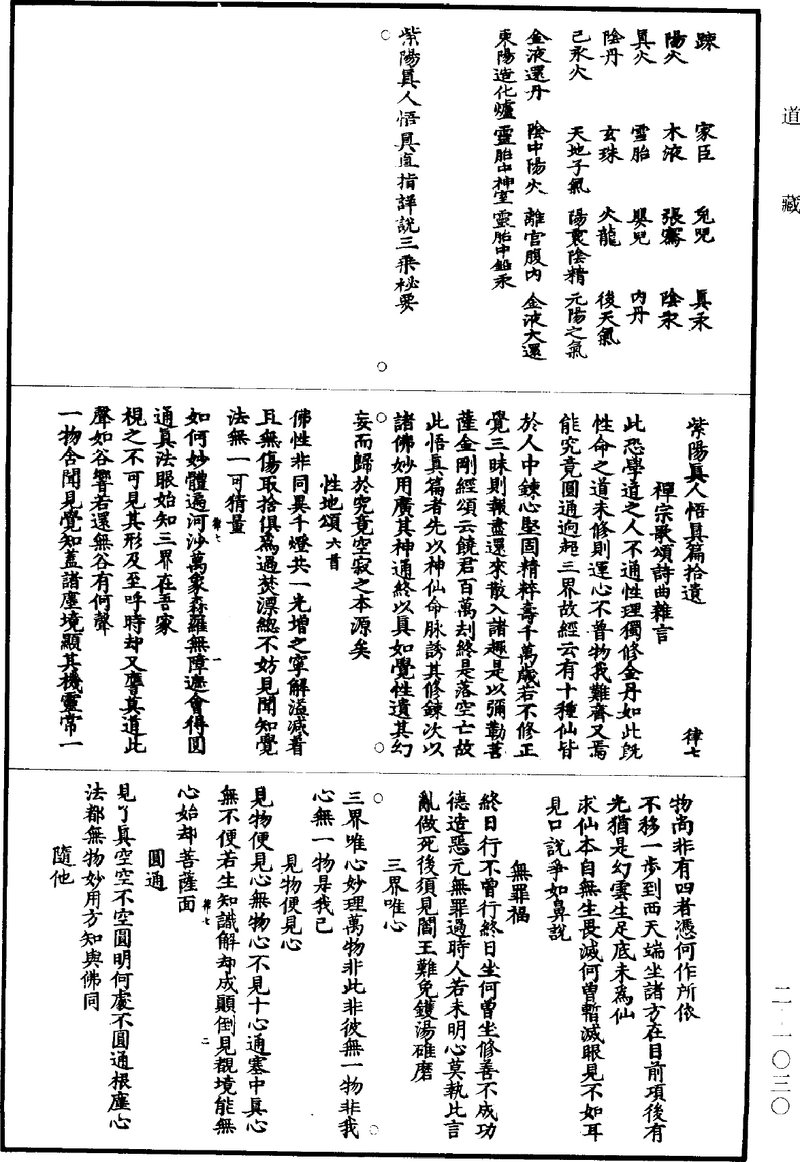 道藏
疎　家臣　兎兕　眞汞
陽火　木液　張騫　陰汞
眞火　雪胎　嬰兒　内丹
陰丹　玄珠　火龍　後天氣
己汞火　天地子氣　陽裏陰精　元陽之氣
金液還丹　陰中陽火　離宫腹内　金液大還
東陽造化爐　靈胎中神室　靈胎中鉛汞
紫陽眞人悟眞直指詳説三乘祕要
紫陽眞人悟眞篇拾遺　律七
禪宗歌頌詩曲雜言
此恐學道之人不通性理獨修金丹如此既
性命之道未修則運心不普物我難齊又焉
能究竟圓通逈超三界故經云有十種仙皆
於人中鍊心堅固精粹壽千萬歲若不修正
覺三昧則報盡還來散入諸趣是以彌勒菩
薩金剛經頌云饒君百萬刦終是落空亡故
此悟眞篇者先以神仙命脉誘其修鍊次以
諸佛妙用廣其神通終以眞如覺性遺其幻
妄而歸於究竟空寂之本源矣
性地頌六首
佛性非同異千燈共一光增之寧解溢減着
且無傷取捨俱爲過焚漂總不妨見聞知覺
法無一可猜量
律七　一
如何妙體遍河沙萬象森羅無障遮會得圓
通眞法眼始知三界在吾家
視之不可見其形及至呼時却又應莫道此
聲如谷響若還無谷有何聲
一物含聞見覺知蓋諸塵境顯其機靈常一
物尚非有四者憑何作所依
不移一步到西天端坐諸方在目前項後有
光猶是幻雲生足底未爲仙
求仙本自無生畏滅何曾暫滅眼見不如耳
見口説爭如鼻説
無罪福
終日行不曾行終日坐何曾坐修善不成功
德造惡元無罪過時人若未明心莫執此言
亂做死後須見閻王難免鑊湯碓磨
三界唯心
三界唯心妙理萬物非此非彼無一物非我
心無一物是我己
見物便見心
見物便見心無物心不見十心通塞中眞心
無不便若生知識解却成顛倒見覩境能無
律七　二
心始却菩薩面
圓通
見了眞空空不空圓明何處不圓通根塵心
法都無物妙用方知與佛同
隨他
二一－一〇三〇